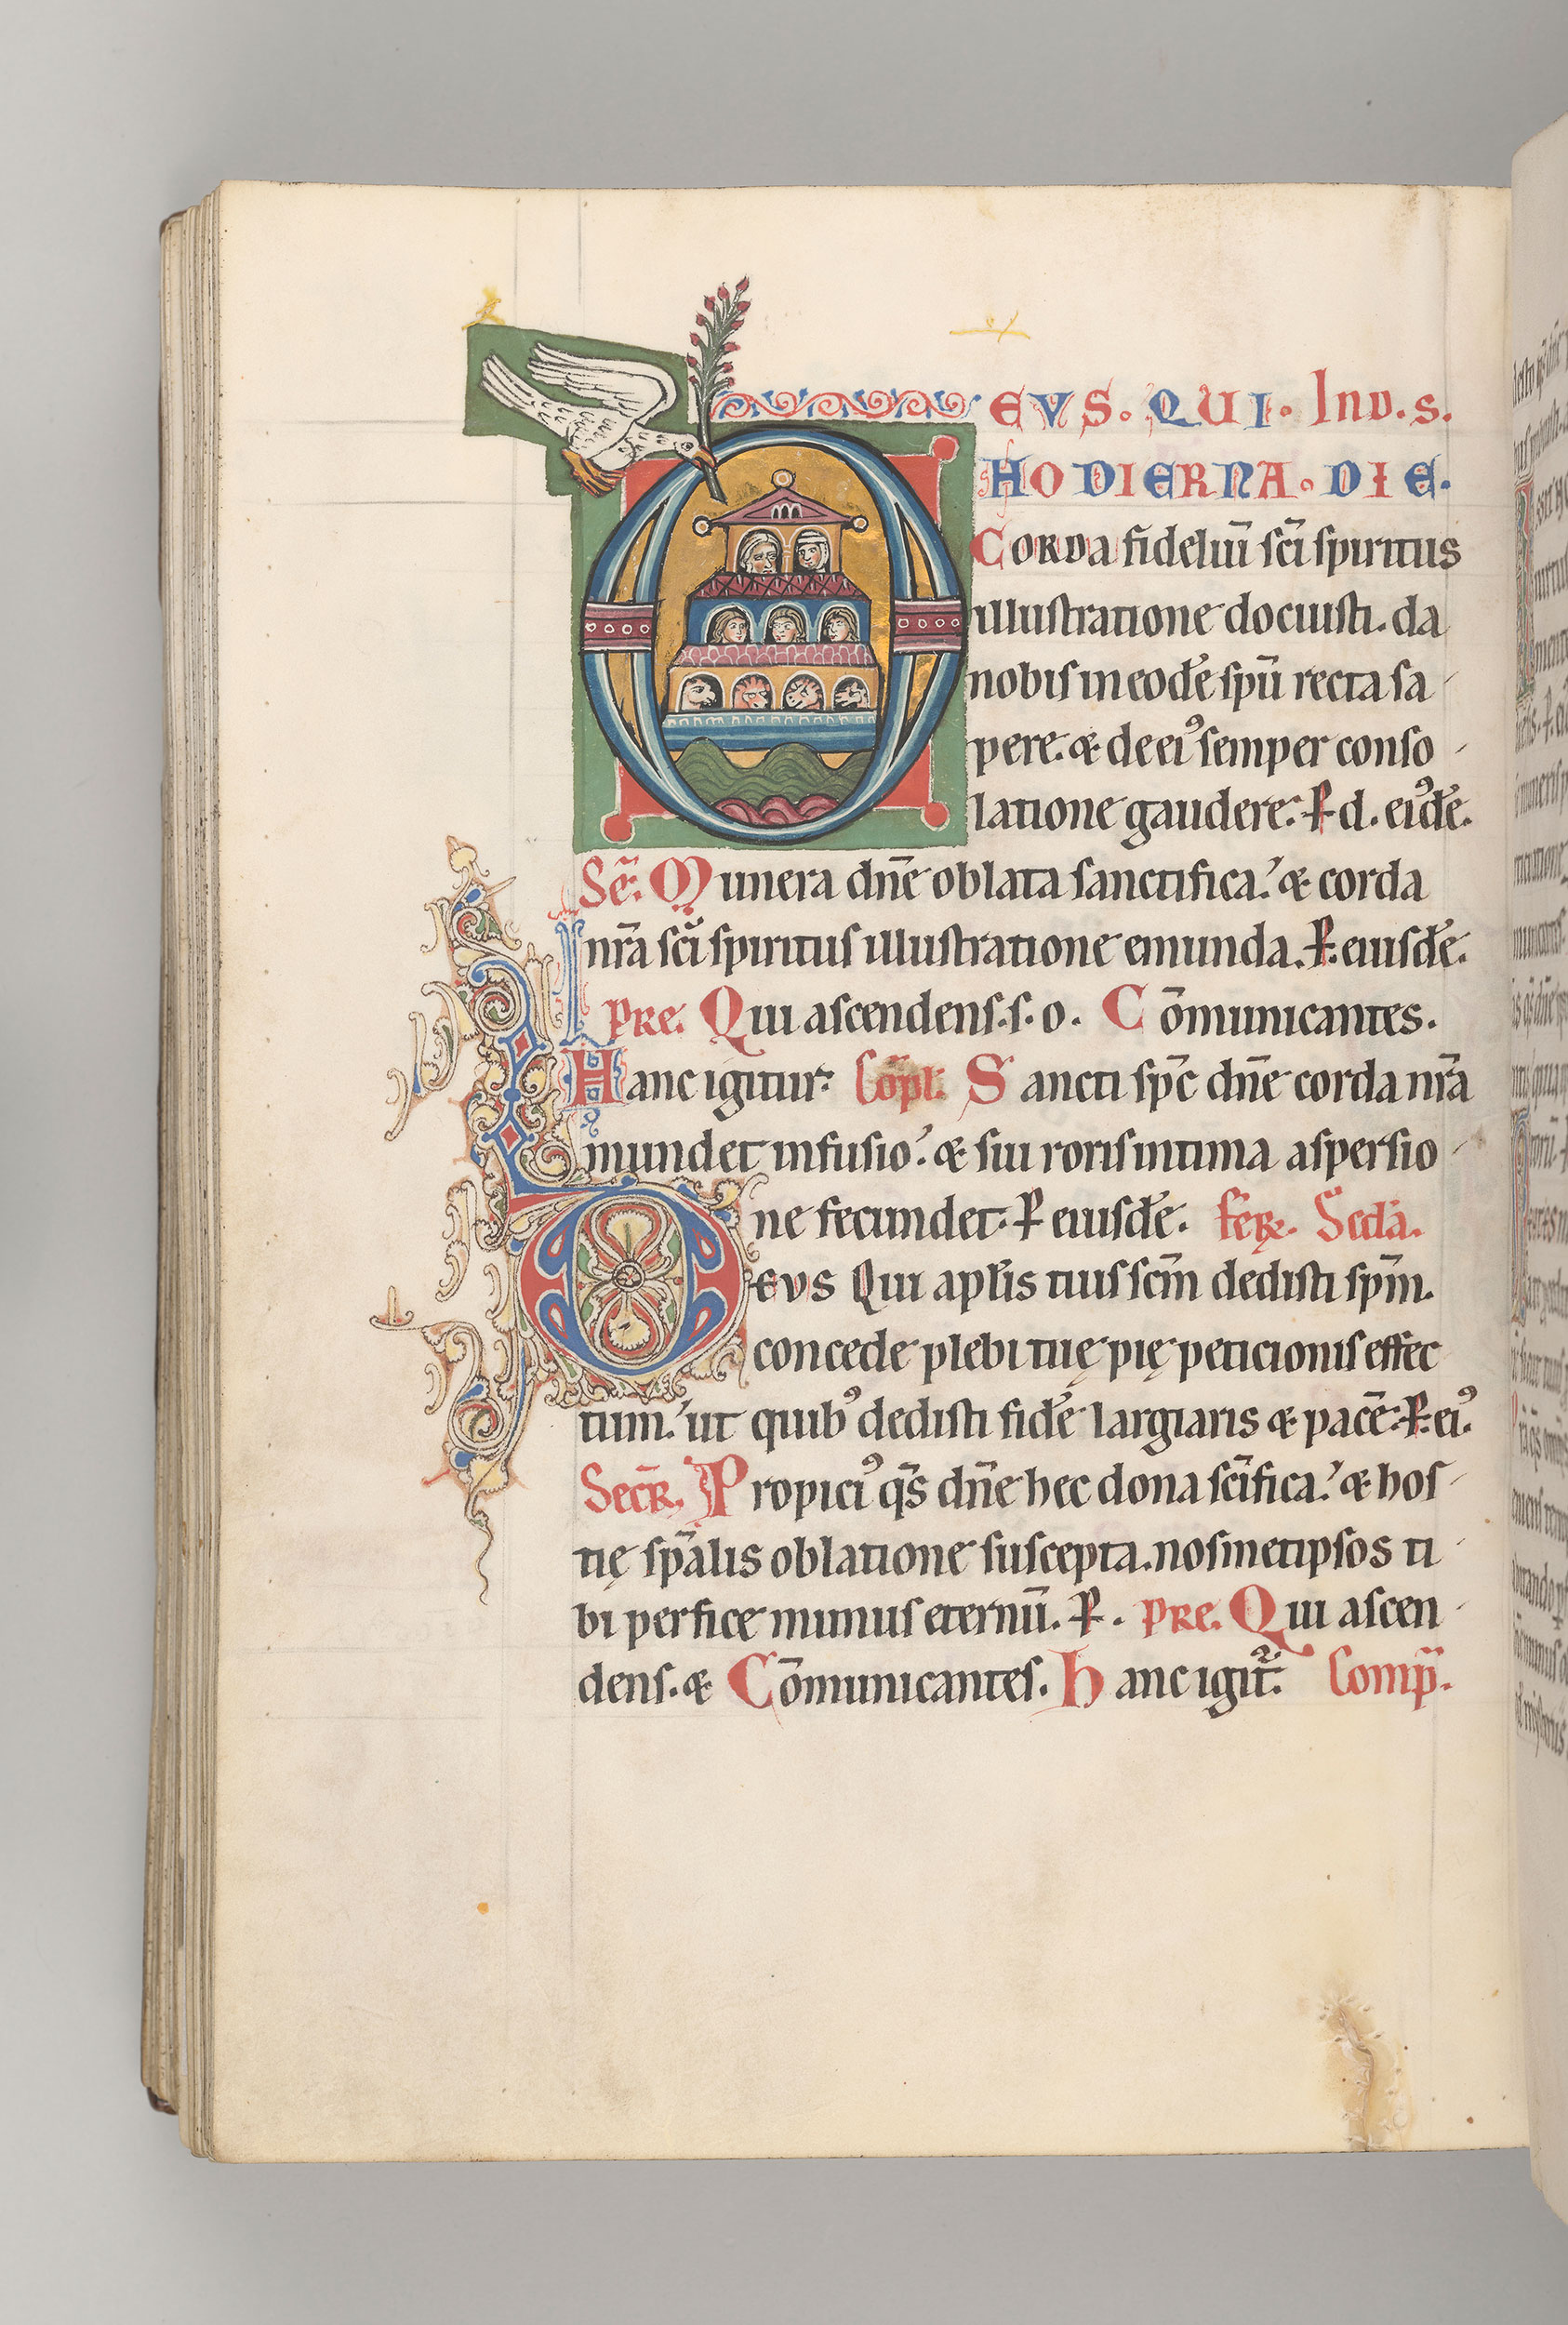 DEUS. QUI. Ind. s.
HODIERNA. DIE.
Corda fideliū sc̄i spiritus
illustratione docuisti. da
nobis in eodē spū recta sa
pere. & de eiꝰ semper conso
latione gaudere. P d. eiꝰdē.
Sē. Munera dn̄e oblata sanctifica. & corda
nr̄a sc̄i spiritus illustratione emunda. P. eiusdē.
Pre. Qui ascendens. s. o. Cōmunicantes.
Hanc igitur. Cōpl. Sancti spc̄ dn̄e corda nr̄a
mundet infusio. & sui roris intima aspersio
ne fecundet. P eiusdē. Fer. Scda.
DEUS Qui apl̄is tuis sc̄m dedisti spm̄.
concede plebi tuę pię peticionis effec
tum. ut quibꝰ dedisti fidē largiaris & pacē. P. eiꝰ.
Secr̄. Propiciꝰ qs̄ dn̄e hec dona sc̄ifica. & hos
tię spālis oblatione suscepta. nosmetipsos ti
bi perfice munus eternū. P. Pre. Qui ascen
dens. & Cōmunicantes. Hanc igit᷑. Comp̄.